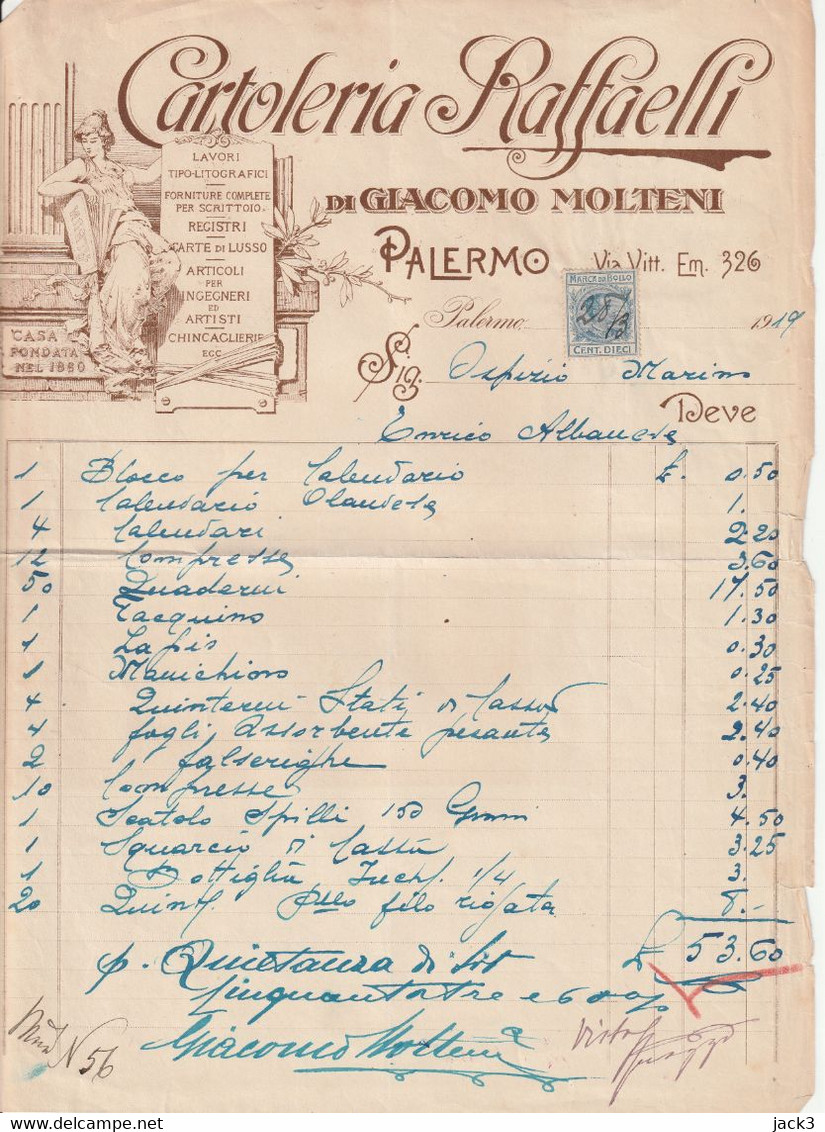 Cartoleria Raffaelli
DI GIACOMO MOLTENI
PALERMO Via Vitt. Em. 326
LAVORI
TIPO-LITOGRAFICI
FORNITURE COMPLETE
PER SCRITTOIO
REGISTRI
CARTE DI LUSSO
ARTICOLI
PER
INGEGNERI
ED
ARTISTI
CHINCAGLIERIE
ECC
CASA
FONDATA
NEL 1860
MARCA DA BOLLO
28/3
CENT. DIECI
Palermo 1919
Sig. Ospizio Marino
Deve
Enrico Albanese
1 Blocco per Calendario £. 0.50
1 Calendario Olandese 1.
4 Calendari 2.20
12 Compresse 3.60
50 Quaderni 17.50
1 Taequino 1.30
1 Lapis 0.30
1 Manichino 0.25
4 Quinterni Stati di Cassa 2.40
4 fogli Assorbente pesante 2.40
2 falserighe 0.40
10 Compresse 3.
1 Scatolo Spilli 150 Gmmi 4.50
1 Squarcio di Cassa 3.25
1 Bottiglia 1/4 3.
20 Quint. filo rigata 8.-
£ 53.60
p. Quietanza di Lit
Cinquantatre e 60
Giacomo Molteni
N 56
Visto
jack3